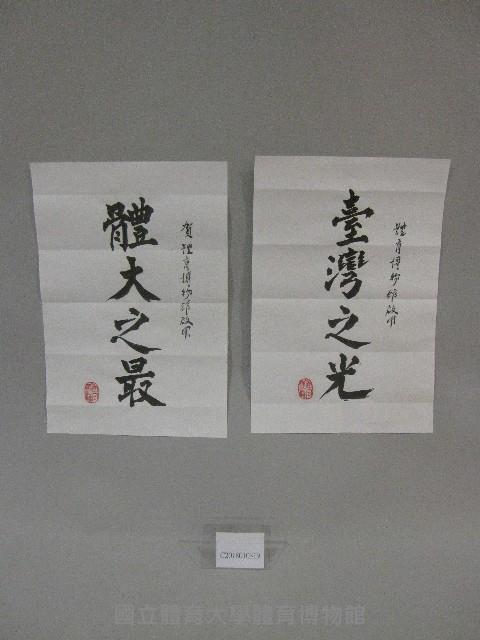 體育博物館啟用
臺灣之光
賀體育博物館啟用
體大之最
國立體育大學體育博物館